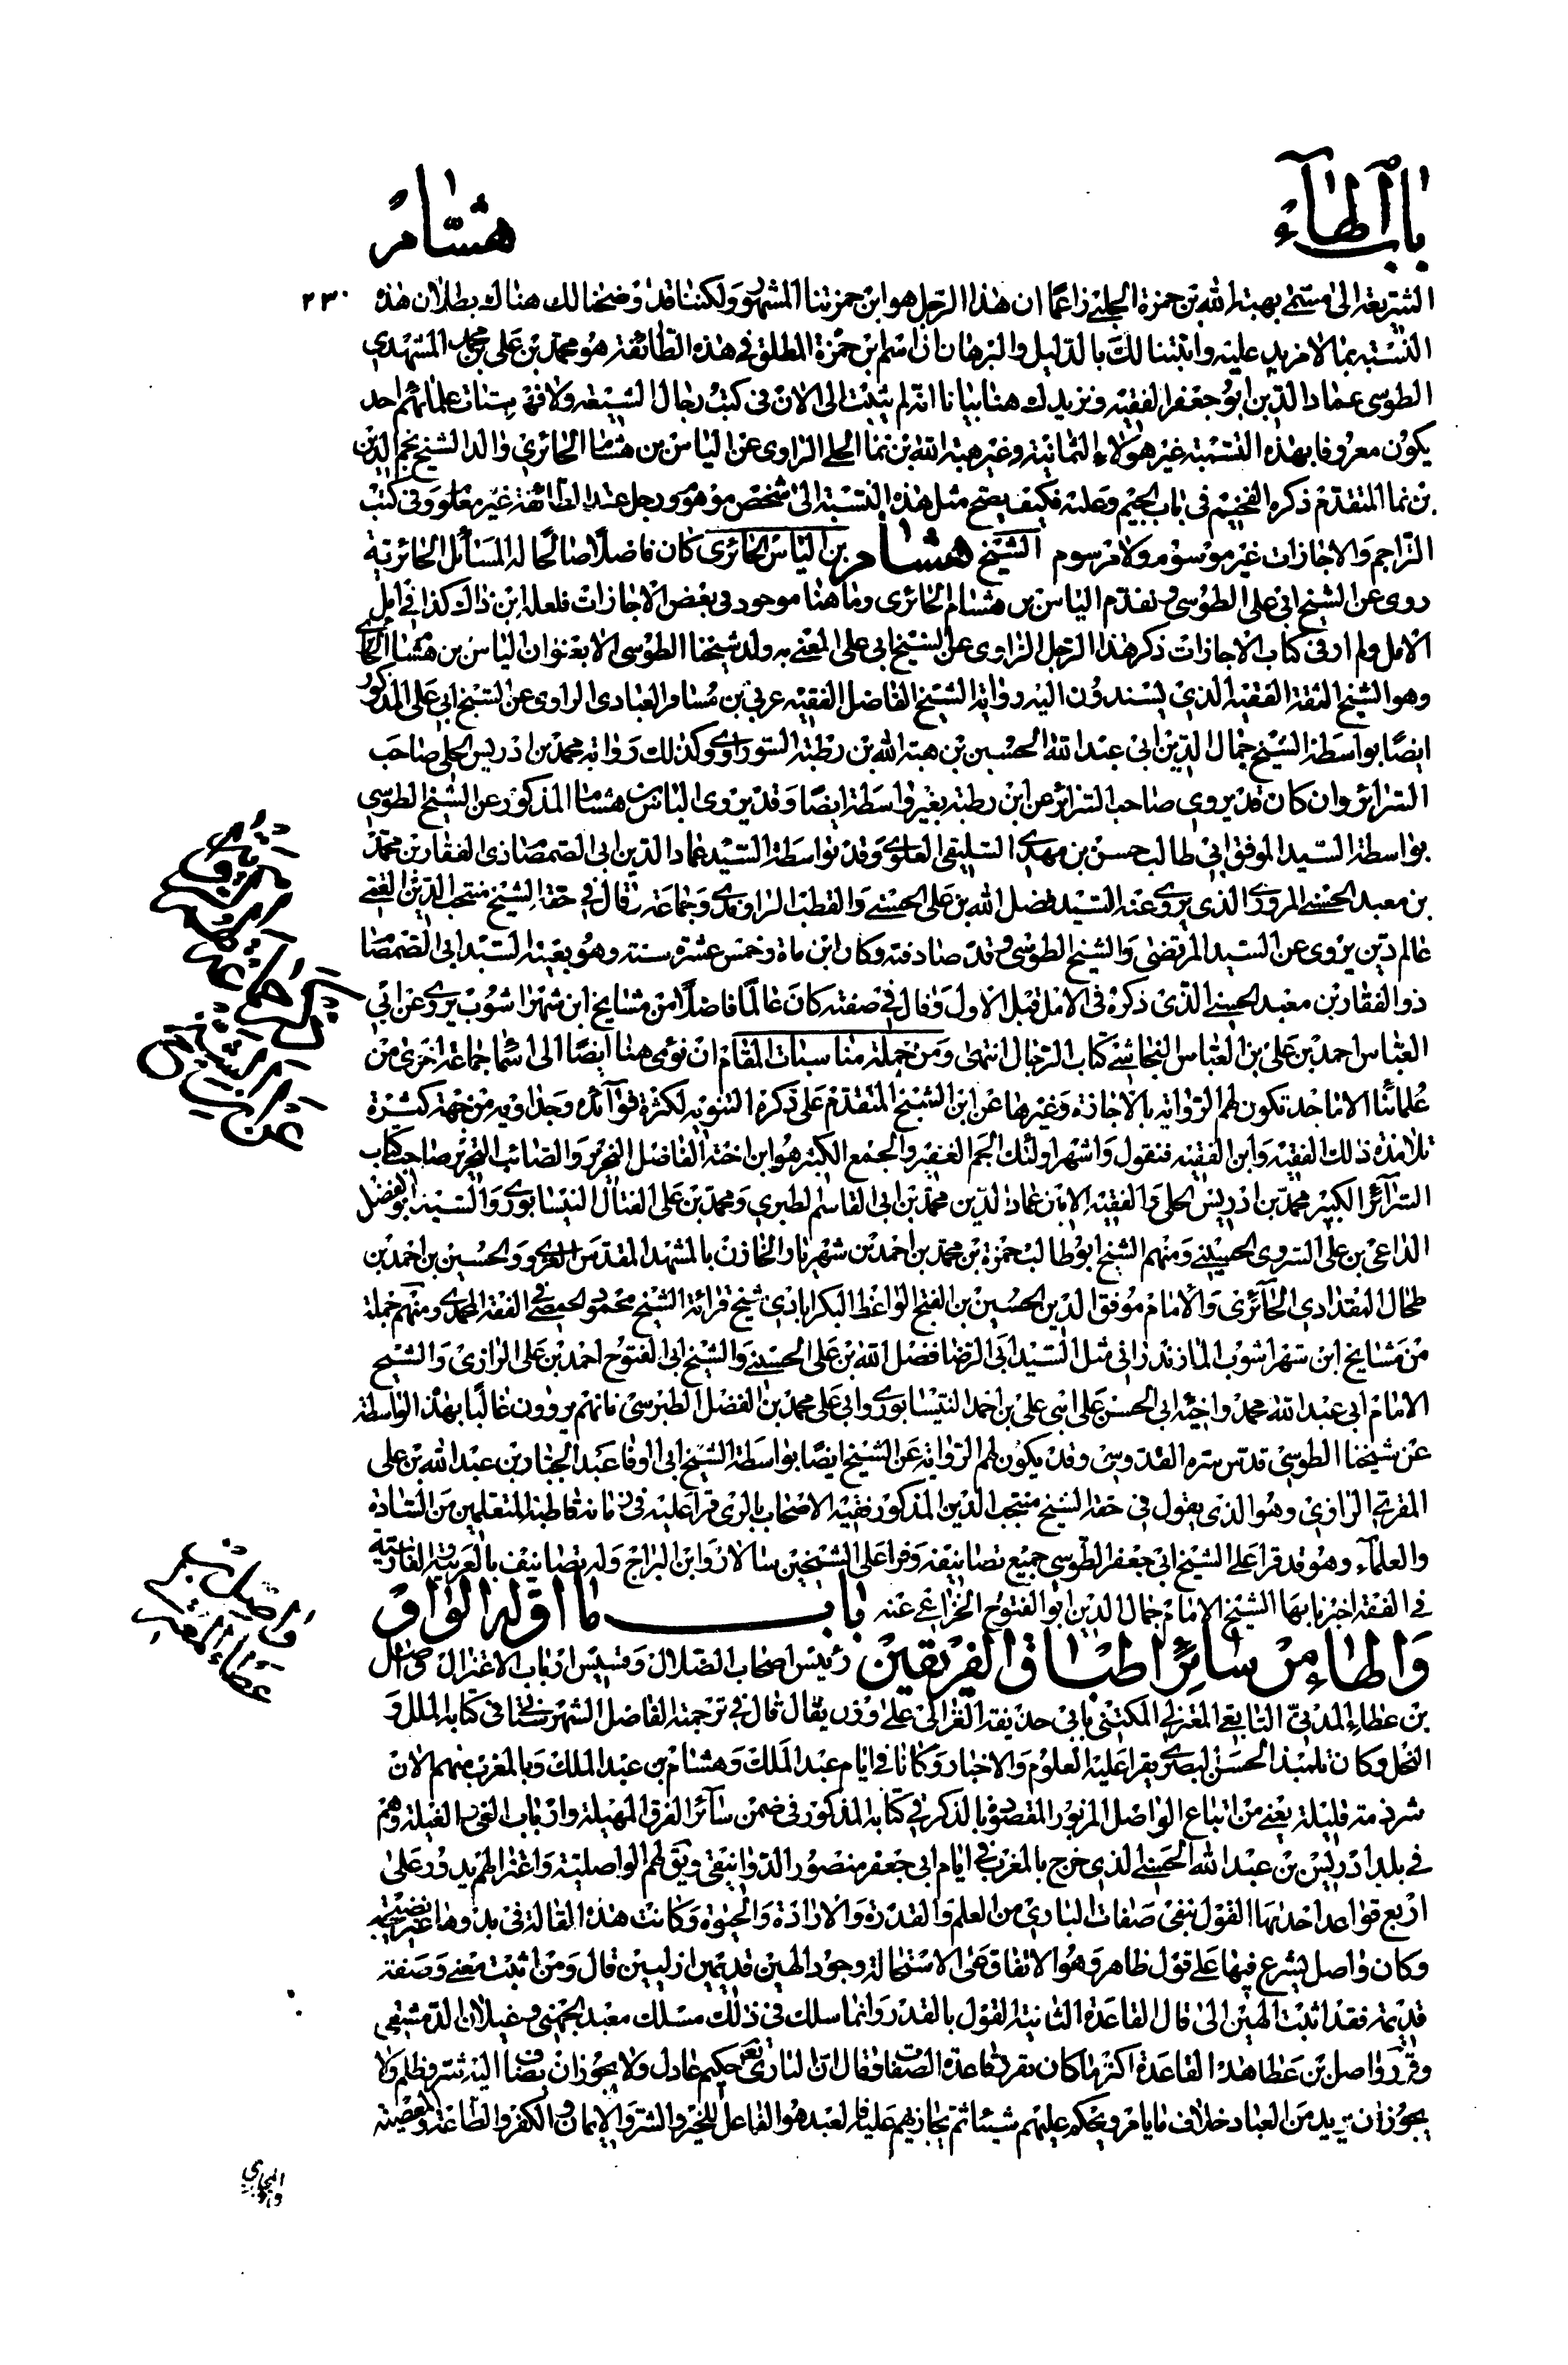 باب الهاء
هشام
٢٣٠
الشريعة الى مسمى بهبة الله بن حمزة الحلى زاعما ان هذا الرجل هو ابن حمزتنا المشهور ولكننا قد اوضحنا لك هناك بطلان هذه
النسبة بما لا مزيد عليه واثبتنا لك بالدليل والبرهان ان اسم ابن حمزة المطلق فى هذه الطائفة هو محمد بن على بن محمد المشهدى
الطوسى عماد الدين ابو جعفر الفقيه ونزيدك هنا بيانا انه لم يثبت الى الان فى كتب رجال الشيعة ولا فهرستات علمائهم احد
يكون معروفا بهذه التسمية غير هؤلاء الثمانية وغير هبة الله بن نما الحلى الراوى عن الياس بن هشام الحائرى والد الشيخ نجم الدين
بن نما المتقدم ذكره الفخيم فى باب الجيم وعليه فكيف يصح مثل هذه النسبة الى شخص موهوم ورجل عند الطائفة غير معلوم وفى كتب
التراجم والاجازات غير موسوم ولا مرسوم الشيخ هشام بن الياس الحائرى كان فاضلا صالحا له المسائل الحائرية
روى عن الشيخ ابى على الطوسى وتقدم الياس بن هشام الحائرى وما هنا موجود فى بعض الاجازات فلعله ابن ذاك كذا فى امل
الامل ولم ار فى كتاب الاجازات ذكر هذا الرجل الراوى عن الشيخ ابى على المعنى به ولد شيخنا الطوسى الا بعنوان الياس بن هشام الحائرى
وهو الشيخ الثقة الفقيه الذى يسندون اليه رواية الشيخ الفاضل الفقيه عربى بن مسافر العبادى الراوى عن الشيخ ابى على المذكور
ايضا بواسطة الشيخ جمال الدين ابى عبد الله الحسين بن هبة الله بن رطبة السوراوى وكذلك رواية محمد بن ادريس الحلى صاحب
السرائر وان كان قد يروى صاحب السرائر عن ابن رطبة بغير واسطة ايضا وقد يروى الياس بن هشام المذكور عن الشيخ الطوسى
بواسطة السيد الموفق ابى طالب حسن بن مهدى السليقى العلوى وقد بواسطة السيد عماد الدين ابى الصمصام ذى الفقار بن محمد
بن معبد الحسنى المروزى الذى يروى عنه السيد فضل الله بن على الحسنى والقطب الراوندى وجماعة قال فى حقه الشيخ منتجب الدين القمى
عالم دين يروى عن السيد المرتضى والشيخ الطوسى وقد صادفته وكان ابن مأة وخمس عشرة سنة وهو بعينه السيد ابى الصمصام
ذو الفقار بن معبد الحسنى الذى ذكره فى الامل قبل الاول وقال فى صفته كان عالما فاضلا من مشايخ ابن شهراشوب يروى عن ابى
العباس احمد بن على بن العباس النجاشى كتاب الرجال انتهى ومن جملة مناسبات المقام ان نومى هنا ايضا الى اسماء جماعة اخرى من
علمائنا الاماجد تكون لهم الرواية بالاجازة وغيرها عن ابن الشيخ المتقدم على ذكره التنويه لكثرة فوائده وجداويه من جهة كثرة
تلامذة ذلك الفقيه وابن الفقيه فنقول واشهر اولئك الجم الغفير والجمع الكثير هو ابن اخته الفاضل النحرير والصائب التحرير صاحب كتاب
السرائر الكبير محمد بن ادريس الحلى والفقيه الامين عماد الدين محمد بن ابى القاسم الطبرى ومحمد بن على الفتال النيسابورى والسيد ابو الفضل
الداعى بن على السروى الحسينى ومنهم الشيخ ابو طالب حمزة بن محمد بن احمد بن شهريار الخازن بالمشهد المقدس الغروى والحسين بن احمد بن
طحال البغدادى الحائرى والامام موفق الدين الحسين بن الفتح الواعظ البكرابادى شيخ قرائة الشيخ محمود الحمصى فى الفقه المحمدى ومنهم جملة
من مشايخ ابن شهراشوب المازندرانى مثل السيد ابى الرضا فضل الله بن على الحسنى والشيخ ابى الفتوح احمد بن على الرازى والشيخ
الامام ابى عبد الله محمد واخيه ابى الحسن على ابنى على بن احمد النيسابورى وابى على محمد بن الفضل الطبرسى فانهم يروون غالبا بهذه الواسطة
عن شيخنا الطوسى قدس سره القدوسى وقد يكون لهم الرواية عن الشيخ ايضا بواسطة الشيخ ابى الوفا عبد الجبار بن عبد الله بن على
المقرى الرازى وهو الذى يقول فى حقه الشيخ منتجب الدين المذكور فقيه الاصحاب بالرى قرا عليه فى زمانه قاطبة المتعلمين من السادة
والعلماء وهو قد قرا على الشيخ ابى جعفر الطوسى جميع تصانيفه وقرا على الشيخين سالار وابن البراج وله تصانيف بالعربية والفارسية
فى الفقه اخبرنا بها الشيخ الامام جمال الدين ابو الفتوح الخزاعى عنه باب ما اوله الواو
والهاء من سائر اطباق الفريقين رئيس اصحاب الضلال وقسيس ارباب الاعتزال واصل
بن عطاء المدنى التابعى المعتزلى المكتنى بابى حذيفة الغزالى على وزن بقال قال فى ترجمته الفاضل الشهرستانى فى كتابه الملل و
النحل وكان تلميذ الحسن البصرى يقرا عليه العلوم والاخبار وكانا فى ايام عبد الملك وهشام بن عبد الملك وبالمغرب منهم الان
شرذمة قليلة يعنى من اتباع الواصل المزبور المقصود بالذكر فى كتابه المذكور فى ضمن سائر الفرق المهيلة وارباب الغى الغيلة وهم
فى بلد ادريس بن عبد الله الحسنى الذى خرج بالمغرب فى ايام ابى جعفر منصور الدوانيقى ويق لهم الواصلية واعتزالهم يدور على
اربع قواعد احديها القول بنفى صفات البارى من العلم والقدرة والارادة والحيوة وكانت هذه المقالة فى بدوها غير نضيجة
وكان واصل يشرع فيها على قول ظاهر وهو الاتفاق على الاستحالة وجود الهين قديمين ازليين قال ومن اثبت معنى وصفة
قديمة فقد اثبت الهين الى قال القاعدة الثانية القول بالقدر وانما سلك فى ذلك مسلك معبد الجهنى وغيلان الدمشقى
وقرر واصل بن عطا هذه القاعدة اكثر مما كان يقرر قاعدة الصفات فقال ان البارى تع حكيم عادل ولا يجوز ان يضاف اليه شر وظلم ولا
يجوز ان يريد من العباد خلاف ما يامر ويحكم عليهم شيئا ثم يجازيهم عليه فالعبد هو الفاعل للخير والشر والايمان والكفر والطاعة والمعصية
واصل بن عطاء المعتزلى